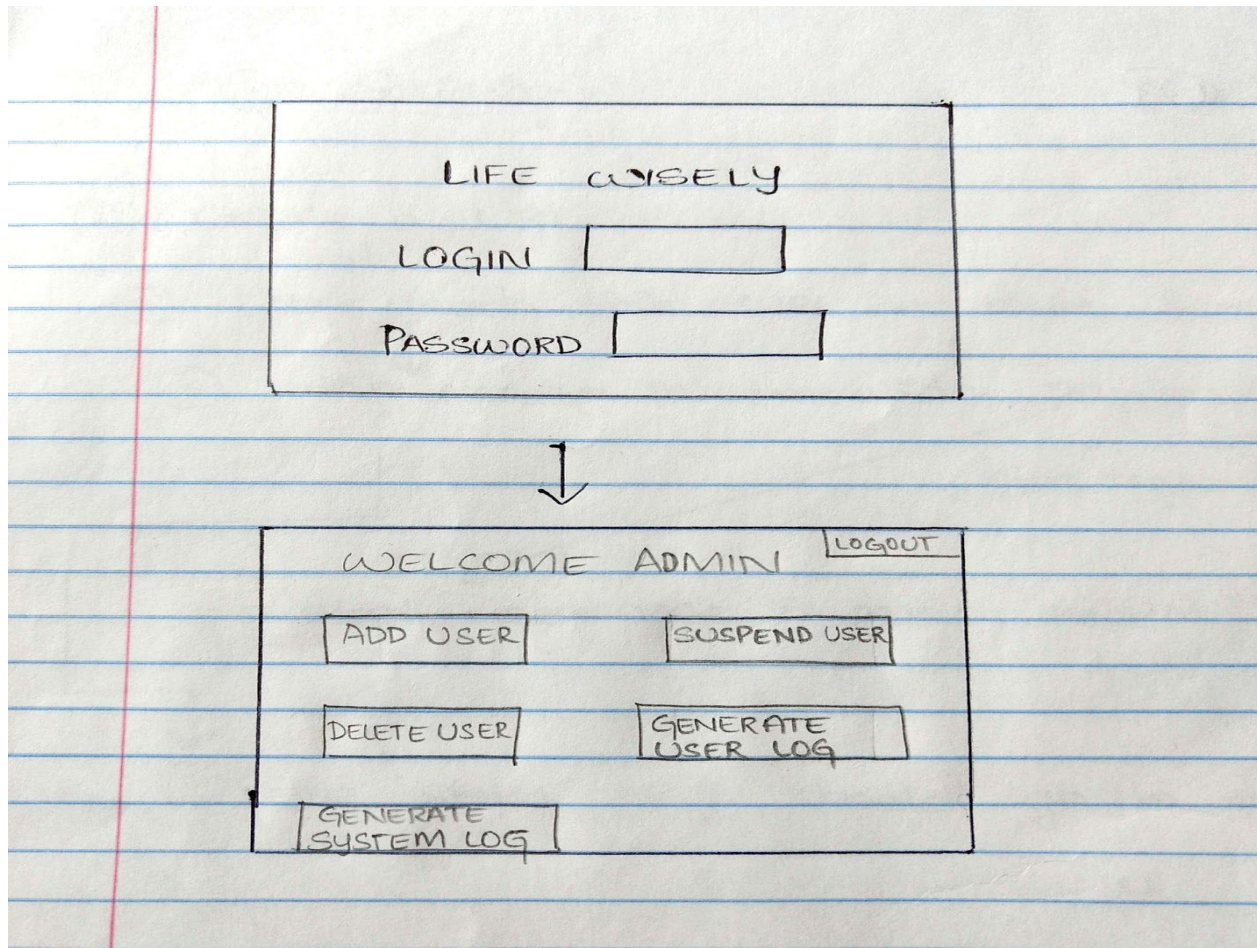 LIFE WISELY
LOGIN
PASSWORD
WELCOME ADMIN
LOGOUT
ADD USER
SUSPEND USER
DELETE USER
GENERATE
USER LOG
GENERATE
SYSTEM LOG